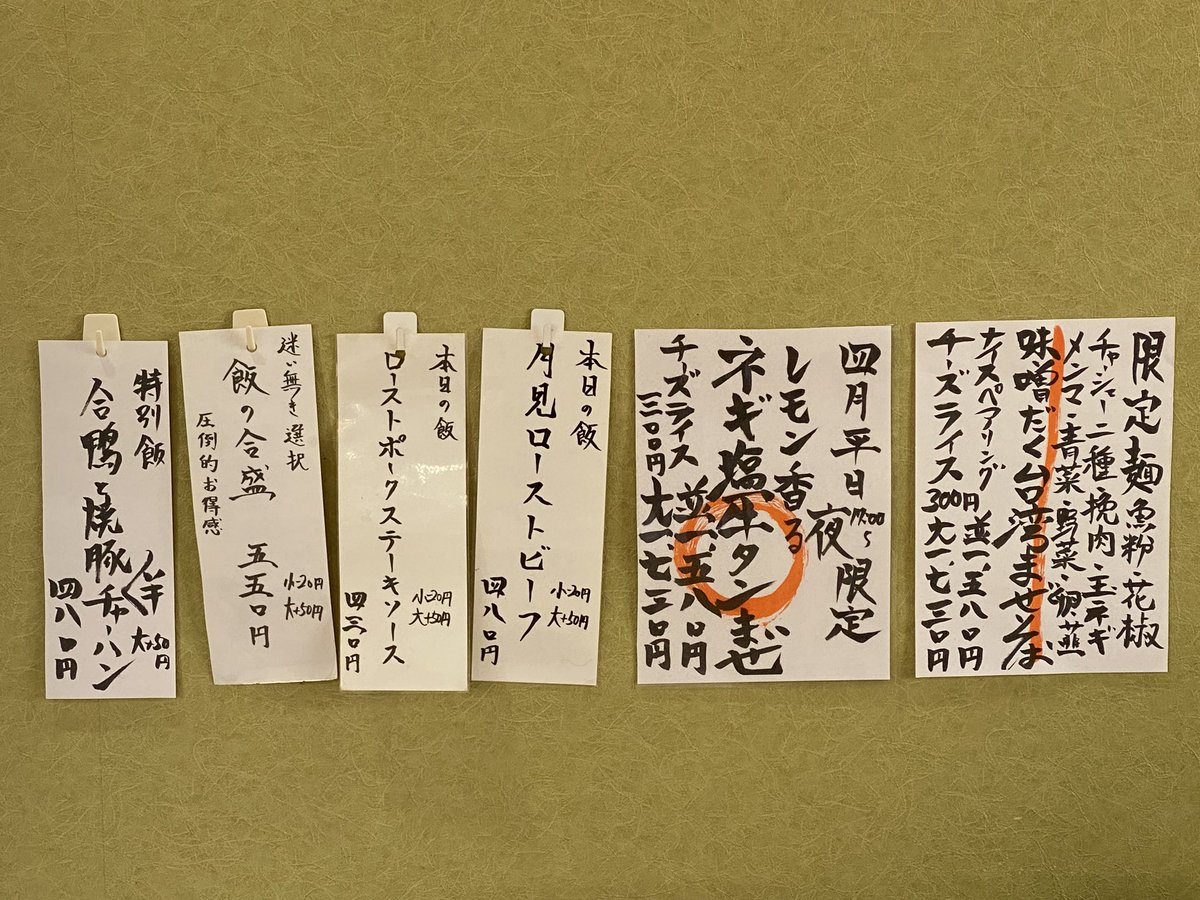 限定麺 魚粉・花椒
チャーシュー二種 挽肉・玉ネギ
メンマ・青菜・野菜・卵・韮
味噌だく台湾まぜそば
ナイスペアリング
チーズライス 300円
並一、五八〇円
大一、七三〇円
四月平日夜限定
17:00~
レモン香る
ネギ塩牛タンまぜ
チーズライス
三三〇円
並一、五八〇円
大一、七三〇円
本日の飯
月見ローストビーフ
小-20円
大+50円
四八〇円
本日の飯
ローストポークステーキソース
小-20円
大+50円
四三〇円
迷い無き選択
飯の合盛 五五〇円
小-20円
大+50円
圧倒的お得感
特別飯
合鴨と焼豚チャーハン
大+50円
四八〇円